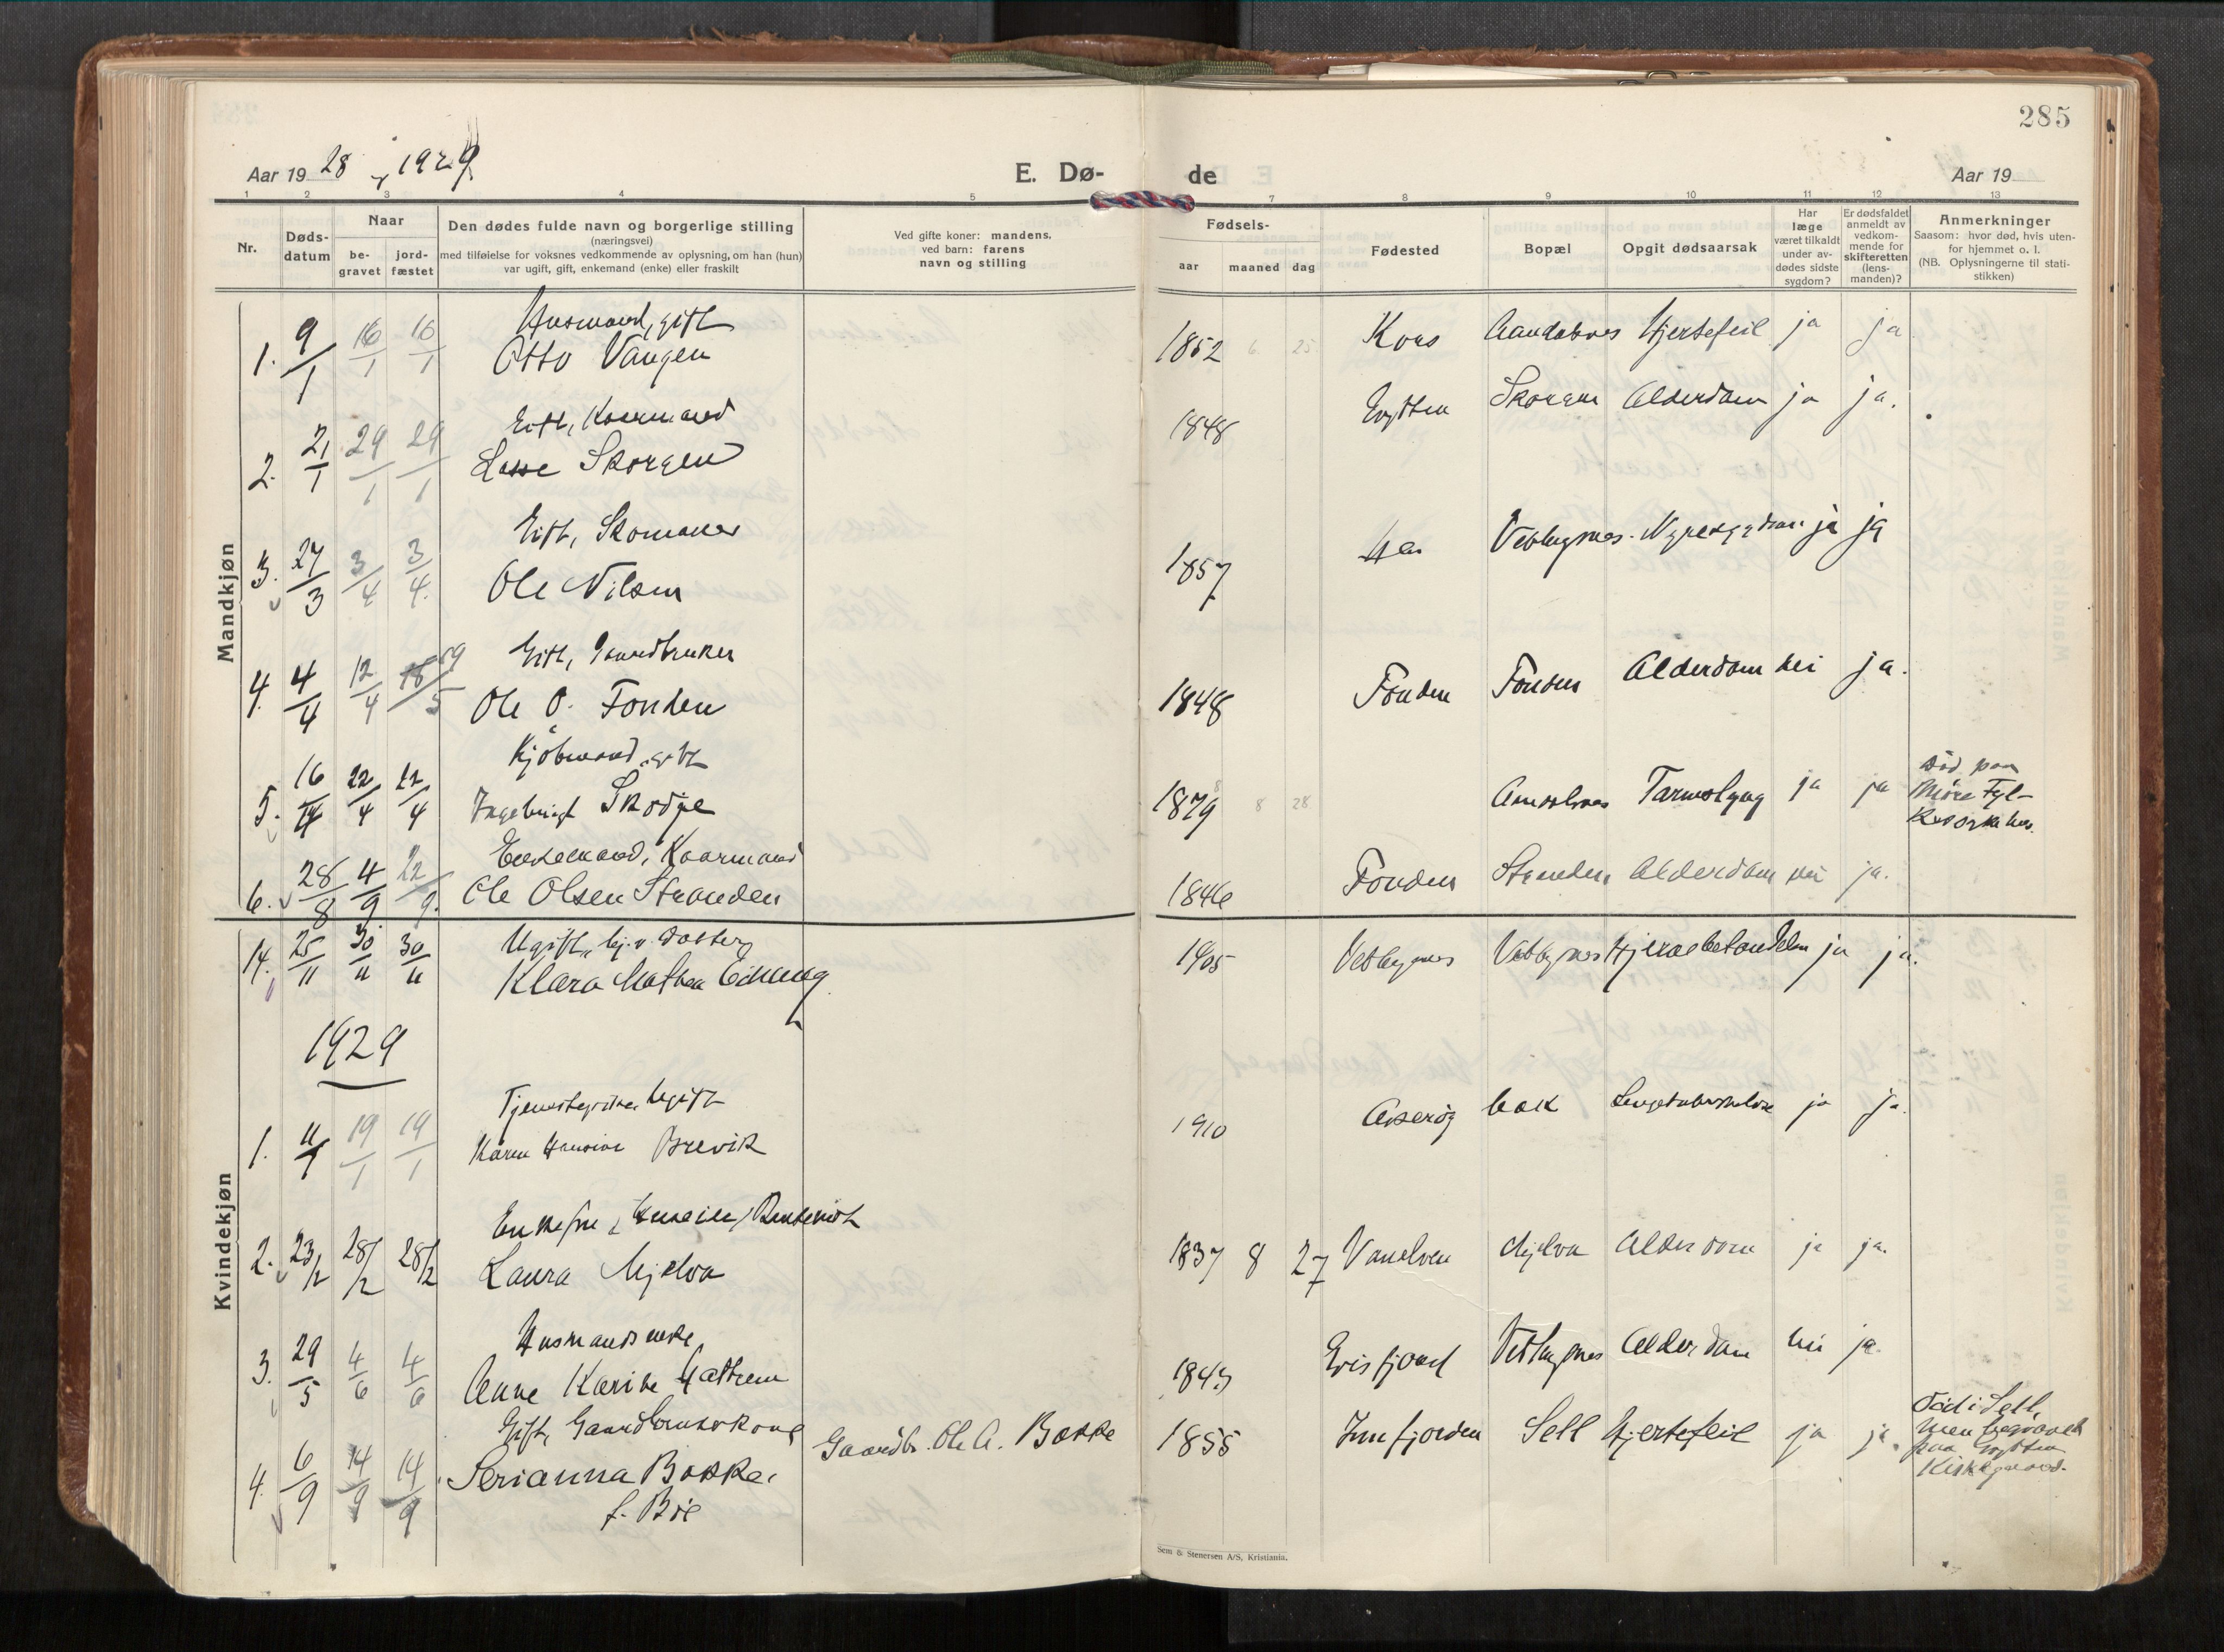 285
Aar 19 28 og 1929
E. Dø- de
Aar 19
1 2 3 4 5 7 8 9 10 11 12 13
Nr.
Døds-
datum
Naar
be-
gravet
jord-
fæstet
Den dødes fulde navn og borgerlige stilling
(næringsvei)
med tilføielse for voksnes vedkommende av oplysning, om han (hun)
var ugift, gift, enkemand (enke) eller fraskilt
Ved gifte koner: mandens.
ved barn: farens
navn og stilling
Fødsels-
aar maaned dag
Fødested
Bopæl
Opgit dødsaarsak
Har
læge
været tilkaldt
under av-
dødes sidste
sygdom?
Er dødsfaldet
anmeldt av
vedkom-
mende for
skifteretten
(lens-
manden)?
Anmerkninger
Saasom: hvor død, hvis uten-
for hjemmet o. l.
(NB. Oplysningerne til stati-
stikken)
Mandkjøn
Husmand, gift
1. 9/1 16/1 16/1 Otto Vangen 1852 6 25 Kors Aandalsnes Hjertefeil ja ja
Gift, Kaarmand
2. 21/1 29/1 29/1 Lasse Skorgen 1848 Grytten Skorgen Alderdom ja ja.
Gift, Skomaker
3. 27/3 3/4 3/4. Ole Nilsen 1857 Hen Veblugsnes. ja ja
Gift, Gaardbruker
4. 4/4 12/4 18/5 19 Ole O. Fonden 1848 Fonden Fonden Alderdom nei ja.
Kjøbmand, gift
5. 16/4 22/4 22/4 Ingebrigt Skodje 1879 8 8 28 Tarmslyng ja ja
død paa
Møre Fyl-
Enkemand, Kaarmand
6. 28/8 4/9 22/9. Ole Olsen Stranden 1846 Fonden Stranden Alderdom nei ja.
Kvindekjøn
Ugift, hj.v. datter
14. 25/11 30/11 30/11 Klara Mathea 1905 Veblugsnes Veblugsnes ja ja.
1929
Ugift
1. 11/1 19/1 19/1 Karen Hansine Brevik 1910 Bak ja ja.
Enkefru,
2. 23/2 28/2 28/2 Laura Mjelva 1837 8 27 Vanelven Mjelva Alderdom ja ja.
Husmandsenke,
3. 29/5 4/6 4/6 Anne Karine Hattrem Erisfjord Veblugsnes Alderdom nei ja.
Gift, Gaardbrukerkone
4. 6/9 14/9 14/9 Serianna Bakke, Gaardbr. Ole A. Bakke 1855 Innfjorden Sell Hjertefeil ja ja.
f. Bøe
Død i Sell,
men begravet
paa Grytten
Kirkegaard.
Sem & Stenersen A/S, Kristiania.